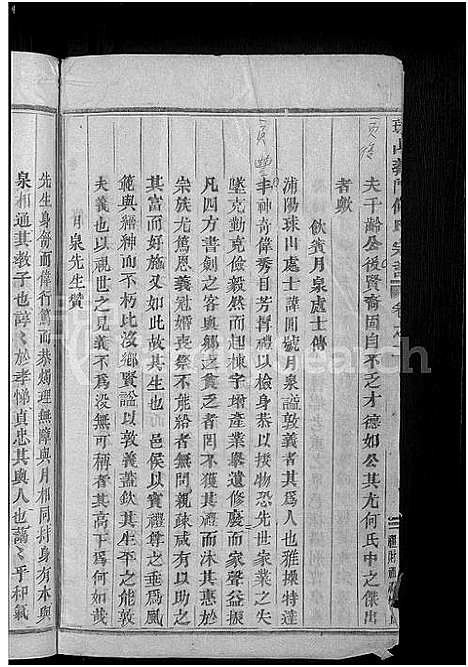 夫千齡公後賢裔固自不乏才德如公其尤何氏中之傑出
者歟
飲賓月泉處士傳
浦陽珠山處士諱圓號月泉謚敦義者其爲人也雅操特達
丰神奇偉秀目芳督禮以檢身恭以接物恐先世家業之失
墜克勤克儉毅然而起棟宇增產業舉遺修廢而家聲益振
凡四方書劍之客與鄉之食乏者罔不被其禮而沐其惠於
宗族尤篤恩義冠婚喪祭不能給者無問親疎咸有以助之
其富而好施又如此故其生也邑侯以賓禮尊之垂爲風
範與縉紳而不朽比沒鄉賢謚以敦義蓋欽其生平之能敦
夫義也以視世之見義不爲沒而無聞者其高下爲何如哉
月泉先生贊
先生身窮而偉行篤而恭燭理無障與月相同持身有本與
泉相通其教子也諄諄於孝悌貞忠其與人也藹藹乎和氣